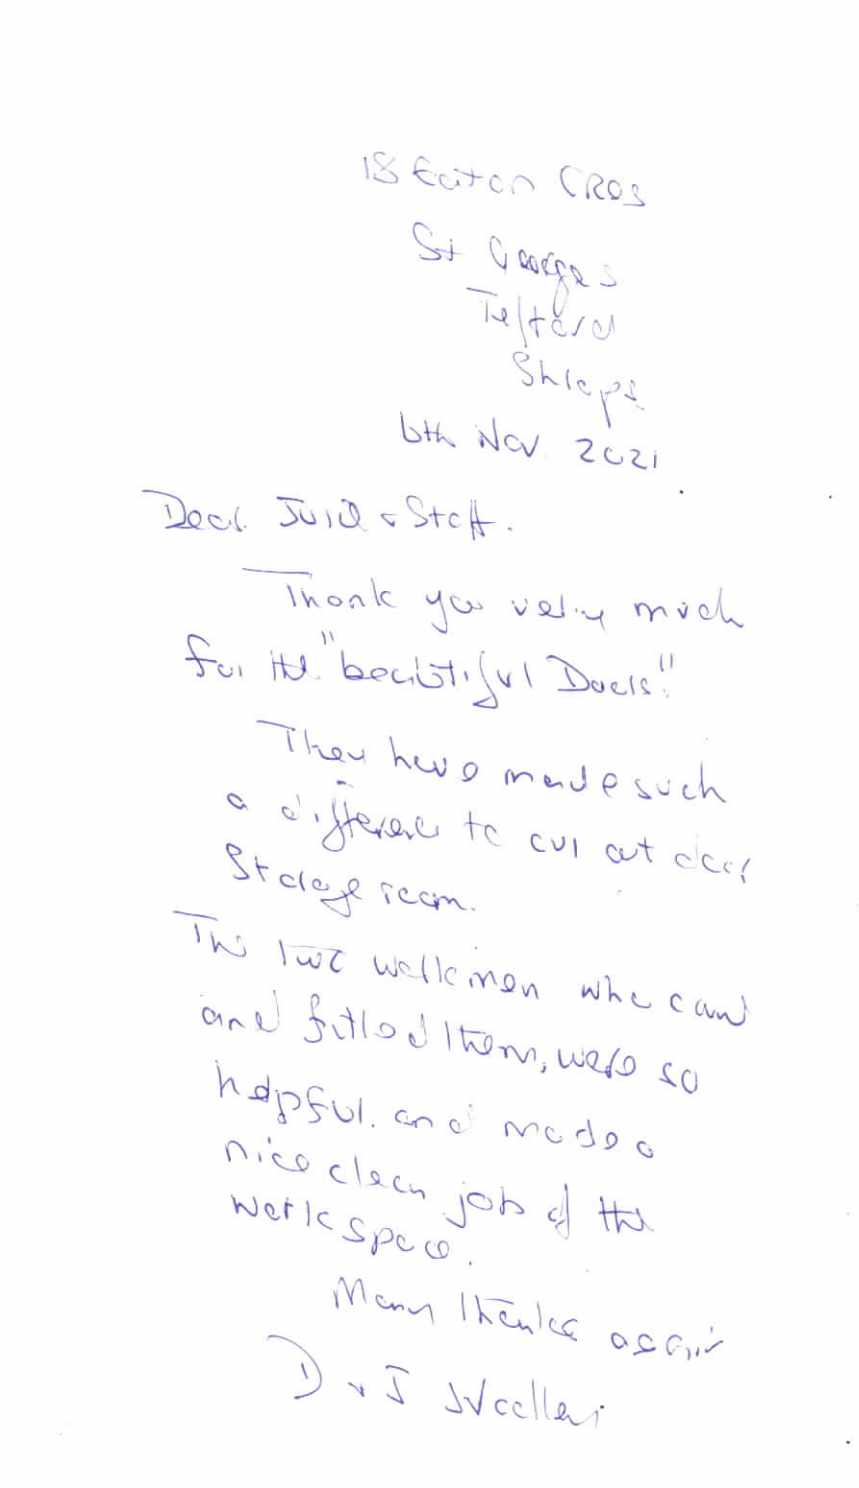 18 Eaton CRES
St Georges
Telford
Shrops
6th Nov 2021
Dear & Staff.
Thank you very much
for the "beautiful Doors".
They have made such
a difference to our out door
Storage room.
The two workmen who came
and fitted them, were so
helpful. and made a
nice clean job of the
work space.
Many thanks again
D & J